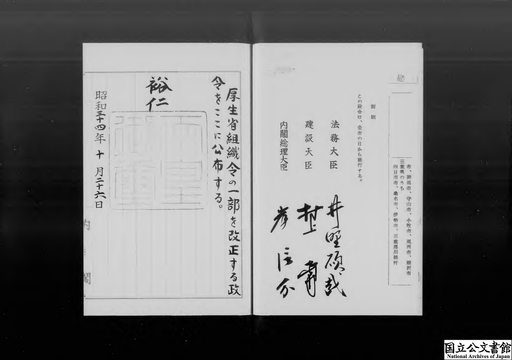 附則
この政令は、公布の日から施行する。
法務大臣 井野碩哉
建設大臣 村上勇
内閣総理大臣 岸信介
厚生省組織令の一部を改正する政
令をここに公布する。
裕仁
昭和三十四年十月二十六日
内閣
国立公文書館
National Archives of Japan